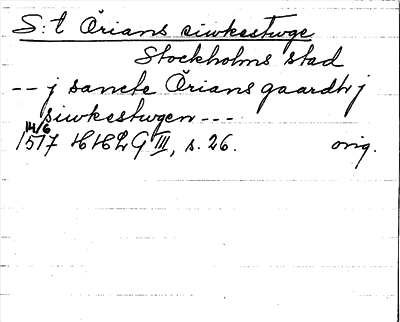 S:t Örians siwkestwge
Stockholms stad
-- j sancte Örians gaardh j
siwkestwgen ---
14/6
1517 HHLG III, s. 26. orig.